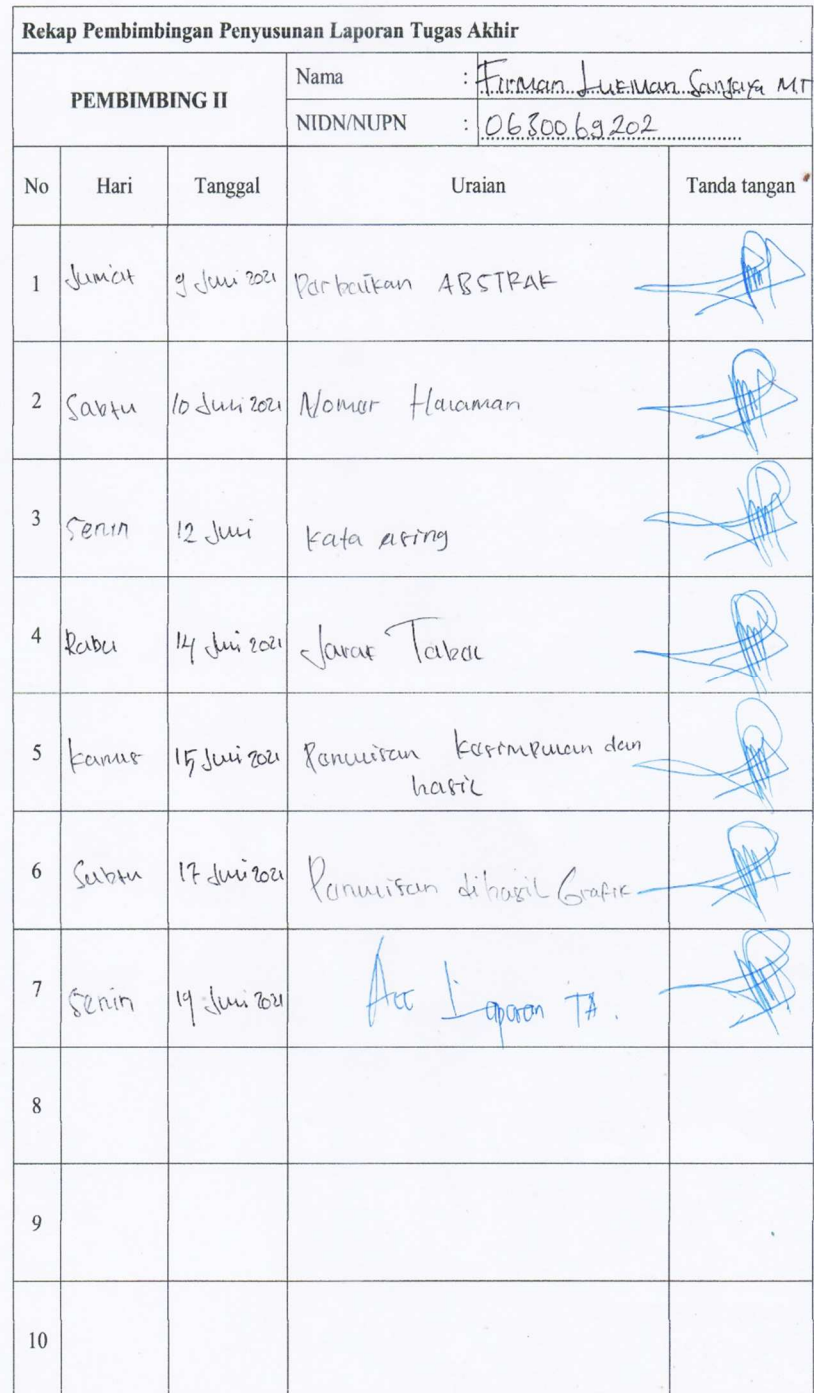 Rekap Pembimbingan Penyusunan Laporan Tugas Akhir
PEMBIMBING II
Nama : Firman Lukman Sanjaya MT
NIDN/NUPN : 0630069202
No Hari Tanggal Uraian Tanda tangan
1 Jumat 9 Juli 2021 Perbaikan ABSTRAK
2 Sabtu 10 Juli 2021 Nomor Halaman
3 Senin 12 Juli Kata asing
4 Rabu 14 Juli 2021 Jarak Tabel
5 Kamis 15 Juli 2021 Penulisan kesimpulan dan
hasil
6 Sabtu 17 Juli 2021 Penulisan dihasil Grafik
7 Senin 19 Juli 2021 Acc Laporan TA.
8
9
10